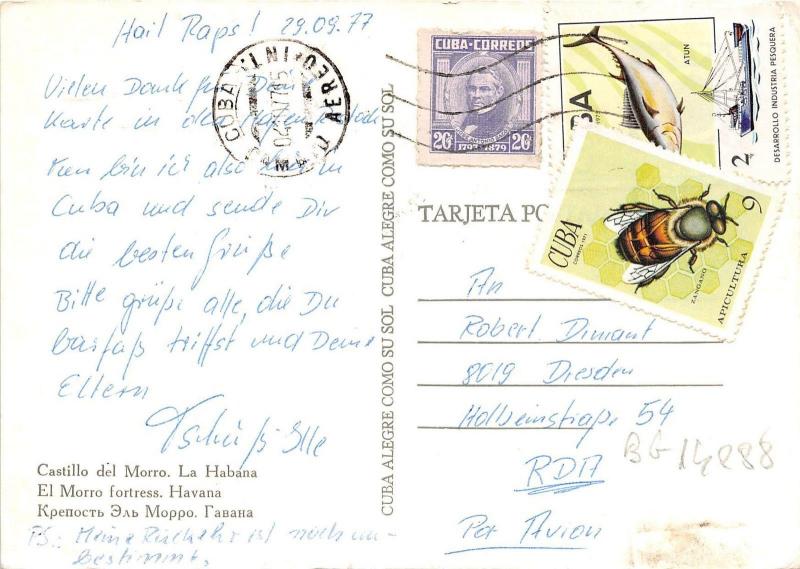 Hail Raps! 29.09.77
Vielen Dank für Deine
Karte in der
bin ich also in
Cuba und sende Dir
die besten Grüße
Bitte grüße alle, die Du
barfuß triffst und Deine
Eltern
Tschüß
Castillo del Morro. La Habana
El Morro fortress. Havana
Крепость Эль Морро. Гавана
PS.: Meine Rückkehr ist noch un-
bestimmt.
CUBA ALEGRE COMO SU SOL CUBA ALEGRE COMO SU SOL
CUBA
AEREO
INT
CUBA-CORREOS
20¢ 20¢
1797-1879
CUBA
ATUN
DESARROLLO INDUSTRIA PESQUERA
2
CUBA
CORREOS 1971
9
ZANGANO
APICULTURA
TARJETA PO
An
Robert Dimant
8019 Dresden
Holbeinstraße 54
RDA
Par Avion
BG 14888